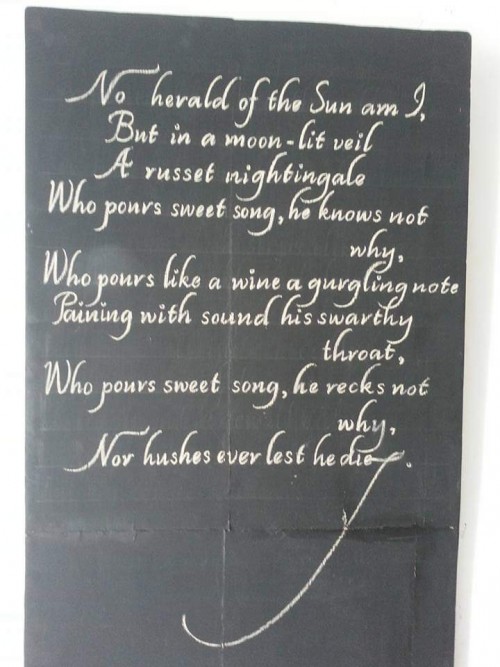 No herald of the Sun am I,
But in a moon-lit veil
A russet nightingale
Who pours sweet song, he knows not
why,
Who pours like a wine a gurgling note
Paining with sound his swarthy
throat,
Who pours sweet song, he recks not
why,
Nor hushes ever lest he die.